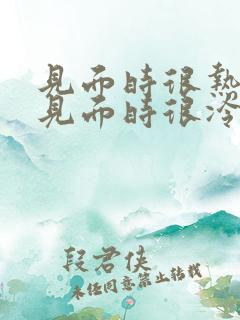 見面時很熱
見面時很冷
段君俠
未經同意禁止轉載